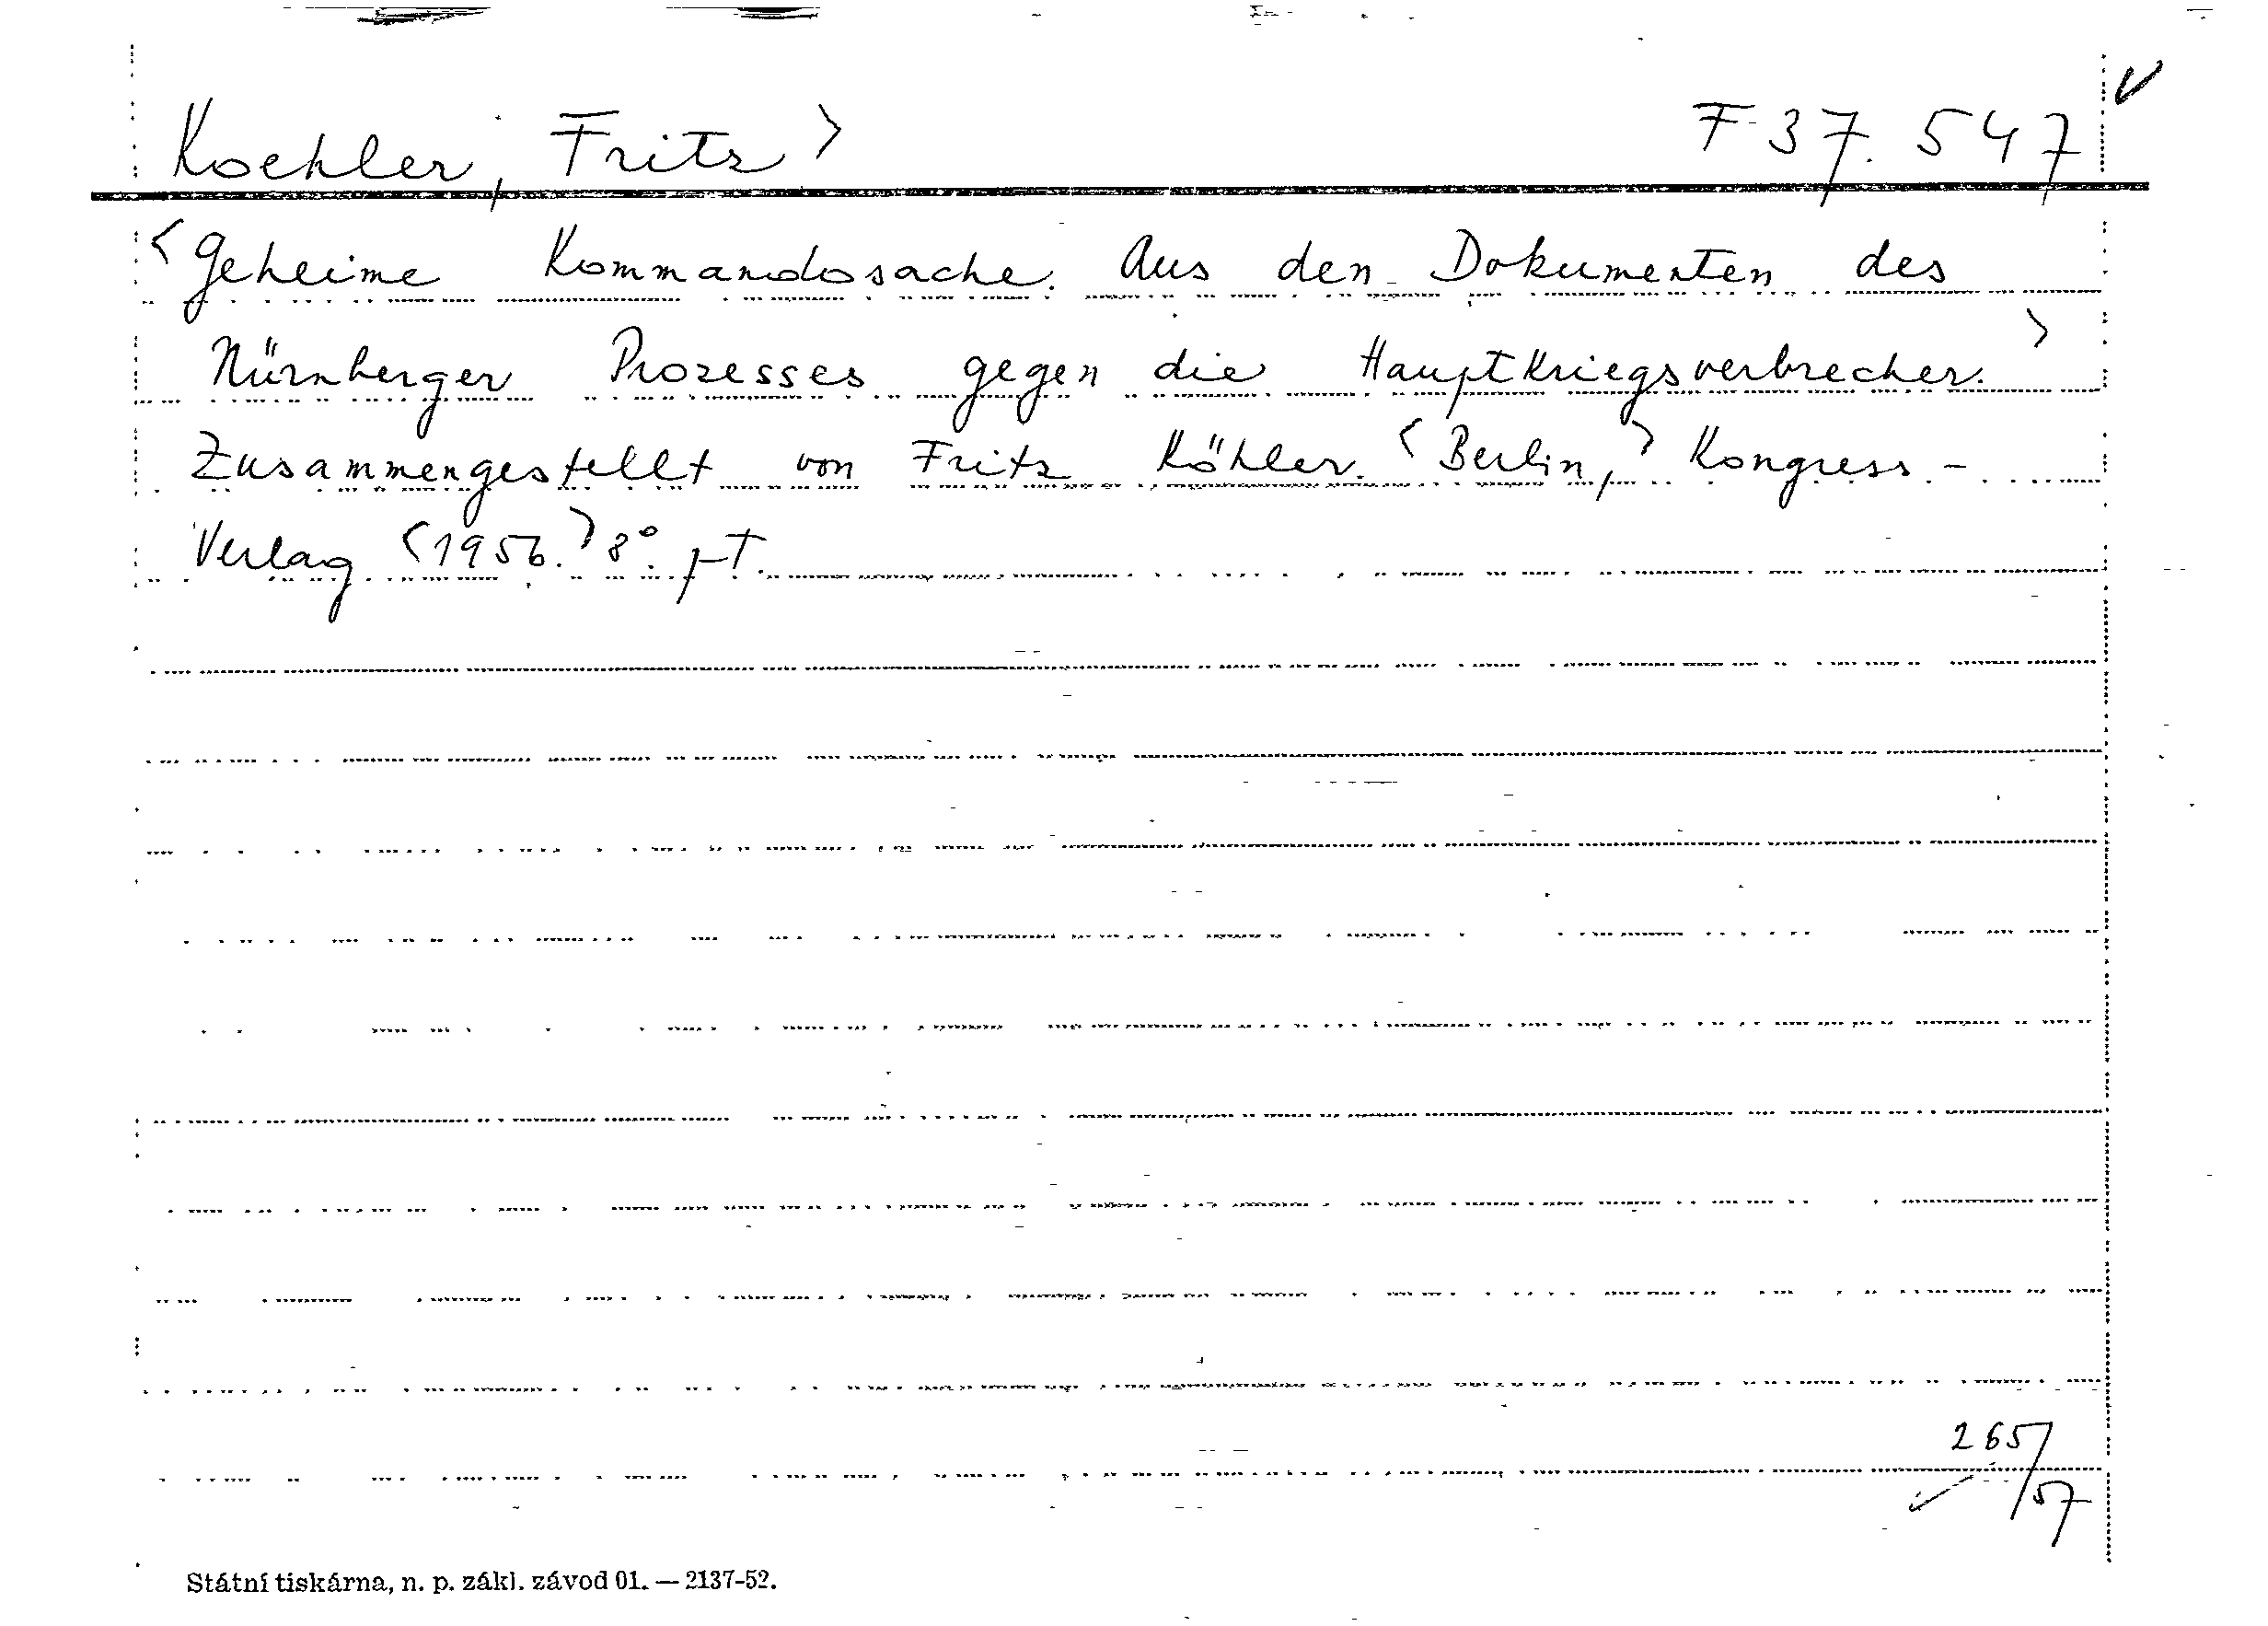 Koehler, Fritz > F 37.547
<Geheime Kommandosache. Aus den Dokumenten des
Nürnberger Prozesses gegen die Hauptkriegsverbrecher.>
Zusammengestellt von Fritz Köhler. <Berlin,> Kongress-
Verlag <1956.> 8°. pT.
265/57
Státní tiskárna, n. p. zákl. závod 01. — 2137-52.